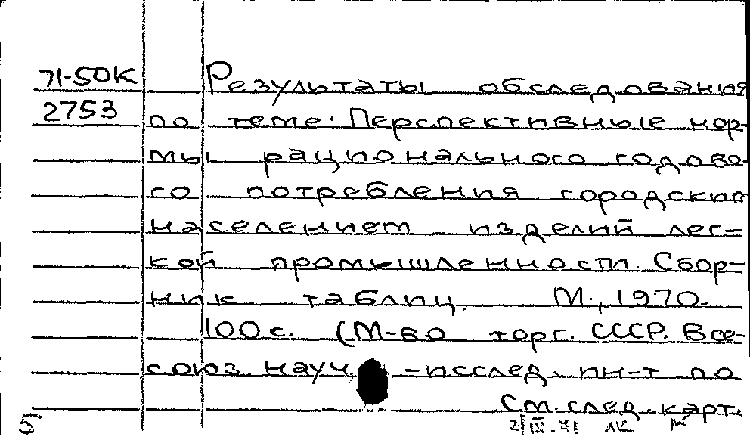 71-50К Результаты обследования
2753 по теме: Перспективные нор-
мы рационального годово-
го потребления городским
населением изделий лег-
кой промышленности. Сбор-
ник таблиц. М., 1970.
100 с. (М-во торг. СССР. Все-
союз. науч.-исслед. ин-т по
См. след. карт.